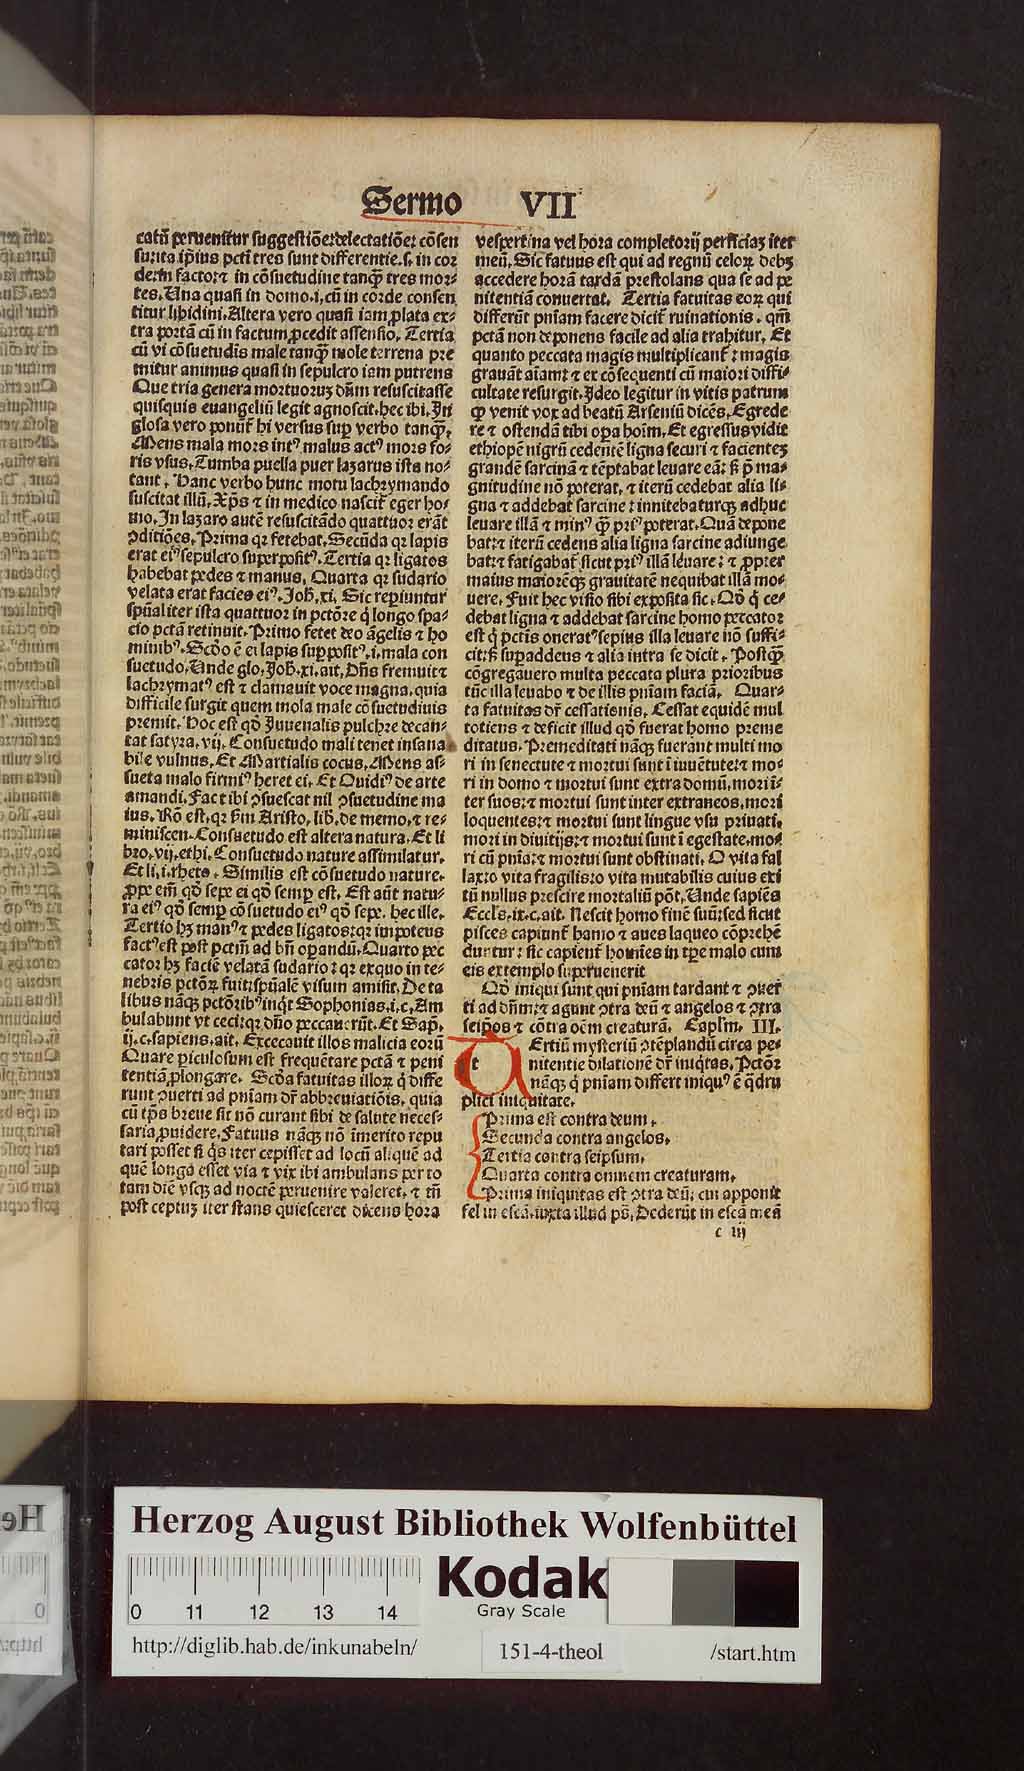 Sermo VII
catũ peruenitur suggestiõe: delectatiõe: cõsen
su: ita ip̃ius pcti tres sunt differentie. s. in cor
de: in facto: ⁊ in cõsuetudine tanq̃ tres mor⸗
tes. Una quasi in domo. i. cũ in corde consen
titur libidini. Altera vero quasi iam plata ex⸗
tra portã cũ in factum pcedit assensio. Tertia
cũ vi cõsuetudĩs male tanq̃ mole terrena pre
mitur animus quasi in sepulcro iam putrens
Que tria genera mortuoꝝ dñm resuscitasse
quisquis euangeliũ legit agnoscit. hec ibi. Jn
glosa vero ponũt̃ hi versus sup verbo tanq̃.
Mens mala mors intꝰ malus actꝰ mors fo⸗
ris vsus. Tumba puella puer lazarus ista no⸗
tant. Hanc verbo hunc motu lachrymando
suscitat illũ. Xp̃s ⁊ in medico nascit̃ eger ho⸗
mo. Jn lazaro autẽ resuscitãdo quattuor erãt
ꝯditiões. Prima qꝛ fetebat. Secũda qꝛ lapis
erat eiꝰ sepulcro superpositꝰ. Tertia qꝛ ligatos
habebat pedes ⁊ manus. Quarta qꝛ sudario
velata erat facies eiꝰ. Joh̃. xi. Sic reperiuntur
spũaliter ista quattuor in pctõre q̇ longo spa⸗
cio pctã retinuit. Primo fetet deo ãgelis ⁊ ho
minibꝰ. Scďo ẽ ei lapis suppositꝰ. i. mala con
suetudo. Unde glo. Joh̃. xi. ait. Dñs fremuit ⁊
lachrymatꝰ est ⁊ clamauit voce magna. quia
difficile surgit quem mola male cõsuetudinis
premit. Hoc est qď Juuenalis pulchre decan⸗
tat satyra. vij. Consuetudo mali tenet insana
bile vulnus. Et Martialis cocus. Mens as⸗
sueta malo firmiꝰ heret ei. Et Ouidiꝰ de arte
amandi. Fac tibi ꝯsuescat nil ꝯsuetudine ma
ius. Rõ est. qꝛ ẜm Aristo. lib. de memo. ⁊ re⸗
miniscen. Consuetudo est altera natura. Et li
bro. vij. ethi. Consuetudo nature assimilatur.
Et li. i. rheto. Similis est cõsuetudo nature.
ꝓpe em̃ qď sepe ei qď semp est. Est aũt natu⸗
ra eiꝰ qď semp cõsuetudo eiꝰ qď sepe. hec ille.
Tertio hꝫ manꝰ ⁊ pedes ligatos: qꝛ impotens
factꝰ est post pctm̃ ad bñ operandũ. Quarto pec
cator hꝫ faciẽ velatã sudario: qꝛ ex quo in te⸗
nebris pctõꝝ fuit: spũalẽ visum amisit. De ta
libus nãqꝫ pctõribꝰ inq̇t Sophonias. i. c. Am
bulabunt vt ceci: qꝛ dño peccauerũt. Et Sap̃.
ij. c. sapiens. ait. Excecauit illos malicia eorũ
Quare piculosum est frequẽtare pctã ⁊ peni
tentiã ꝓlongare. Scďa fatuitas illoꝝ q̇ diffe
runt ꝯuerti ad pniam dr̃ abbreuiatiõis. quia
cũ tp̃s breue sit nõ curant sibi de salute neces⸗
saria ꝓuidere. Fatuus nãqꝫ nõ ĩmerito repu
tari posset si q̇s iter cepisset ad locũ aliquẽ ad
quẽ longa esset via ⁊ vix ibi ambulans per to
tam diẽ vsqꝫ ad noctẽ peruenire valeret. ⁊ tñ
post ceptuꝫ iter stans quiesceret dicens hora
vespertina vel hora completorij perficiaꝫ iter
meũ. Sic fatuus est qui ad regnũ celoꝝ debꝫ
accedere horã tardã prestolans qua se ad pe
nitentiã conuertat. Tertia fatuitas eoꝝ qui
differũt pniam facere dicit̃ ruinationis. qm̃
pctã non deponens facile ad alia trahitur. Et
quanto peccata magis multiplicant̃: magis
grauãt aĩam: ⁊ ex cõsequenti cũ maiori diffi⸗
cultate resurgit. Jdeo legitur in vitis patrum
ꝙ venit vox ad beatũ Arseniũ dicẽs. Egrede
re ⁊ ostendã tibi opa hoĩm. Et egressus vidit
ethiopẽ nigrũ cedentẽ ligna securi ⁊ facienteꝫ
grandẽ sarcinã ⁊ tẽptabat leuare eã: s̃ p̃ ma⸗
gnitudine nõ poterat. ⁊ iterũ cedebat alia li⸗
gna ⁊ addebat sarcine: innitebaturqꝫ adhuc
leuare illã ⁊ minꝰ q̃ priꝰ poterat. Quã depone
bat: ⁊ iterũ cedens alia ligna sarcine adiunge
bat: ⁊ fatigabat̃ sicut priꝰ illã leuare: ⁊ ꝓpter
maius maiorẽqꝫ grauitatẽ nequibat illã mo⸗
uere. Fuit hec visio sibi exposita sic. Qď q̇ ce⸗
debat ligna ⁊ addebat sarcine homo peccator
est q̇ pctis oneratꝰ sepius illa leuare nõ suffi⸗
cit: s̃ supaddens ⁊ alia intra se dicit. Postq̃
cõgregauero multa peccata plura prioribus
tũc illa leuabo ⁊ de illis pniam faciã. Quar⸗
ta fatuitas dr̃ cessationis. Cessat equidẽ mul
totiens ⁊ deficit illud qď fuerat homo preme
ditatus. Premeditati nãqꝫ fuerant multi mo
ri in senectute ⁊ mortui sunt ĩ iuuẽtute: ⁊ mo⸗
ri in domo ⁊ mortui sunt extra domũ. mori ĩ⸗
ter suos: ⁊ mortui sunt inter extraneos. mori
loquentes: ⁊ mortui sunt lingue vsu priuati.
mori in diuitijs: ⁊ mortui sunt ĩ egestate. mo⸗
ri cũ pnia: ⁊ mortui sunt obstinati. O vita fal
lax: o vita fragilis: o vita mutabilis cuius exi
tũ nullus prescire mortaliũ põt. Unde sapiẽs
Eccls. ix. c. ait. Nescit homo finẽ suũ: sed sicut
pisces capiunt̃ hamo ⁊ aues laqueo cõprehẽ
duntur: sic capient̃ homĩes in tpe malo cum
eis extemplo superuenerit
Qď iniqui sunt qui pniam tardant ⁊ ꝯuer
ti ad dñm: ⁊ agunt ꝯtra deũ ⁊ angelos ⁊ ꝯtra
seipõs ⁊ cõtra oẽm creaturã. Capl̃m. III.
t Ertiũ mysteriũ ꝯtẽplandũ circa pe⸗
nitentie dilationẽ dr̃ iniq̇tas. Pctõr
nãqꝫ q̇ pniam differt iniquꝰ ẽ q̃dru
plici iniquitate.
Prima est contra deum.
Secunda contra angelos.
Tertia contra seipsum.
Quarta contra omnem creaturam.
Prima iniquitas est ꝯtra deũ: cui apponit
fel in escã. iuxta illud pš. Dederũt in escã meã
c iij
Herzog August Bibliothek Wolfenbüttel
Kodak
Gray Scale
0 11 12 13 14
http://diglib.hab.de/inkunabeln/
151-4-theol
/start.htm